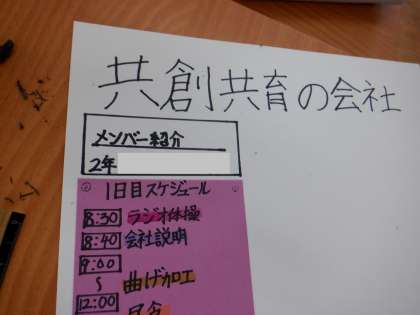 共創共育の会社
メンバー紹介
2年
1日目スケジュール
8:30 ラジオ体操
8:40 会社説明
9:00
～ 曲げ加工
12:00